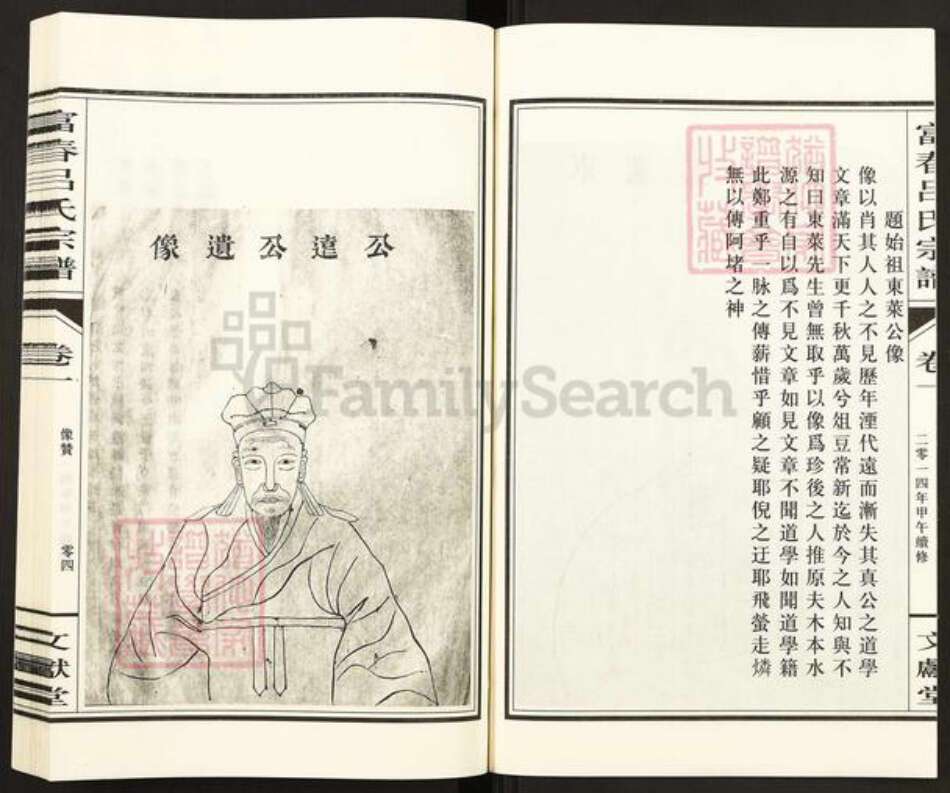 富春呂氏宗譜
卷一
二零一四年甲午續修
文獻堂
題始祖東萊公像
像以肖其人人之不見歷年湮代遠而漸失其真公之道學
文章滿天下更千秋萬歲兮俎豆常新迄於今之人知與不
知曰東萊先生曾無取乎以像爲珍後之人推原夫木本水
源之有自以爲不見文章如見文章不聞道學如聞道學籍
此鄭重乎一脉之傳薪惜乎顧之疑耶倪之迂耶飛螢走燐
無以傳阿堵之神
公逵公遺像
富春呂氏宗譜
卷一
像贊
零四
文獻堂
FamilySearch